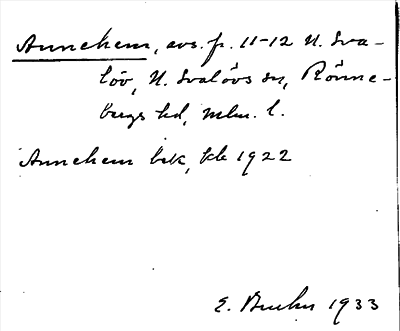 Annehem, avs. fr. 11-12 N. Sva-
löv, N. Svalövs sn, Rönne-
bergs hd, Mlm. l.
Annehem brk, kb 1922
E. 1933